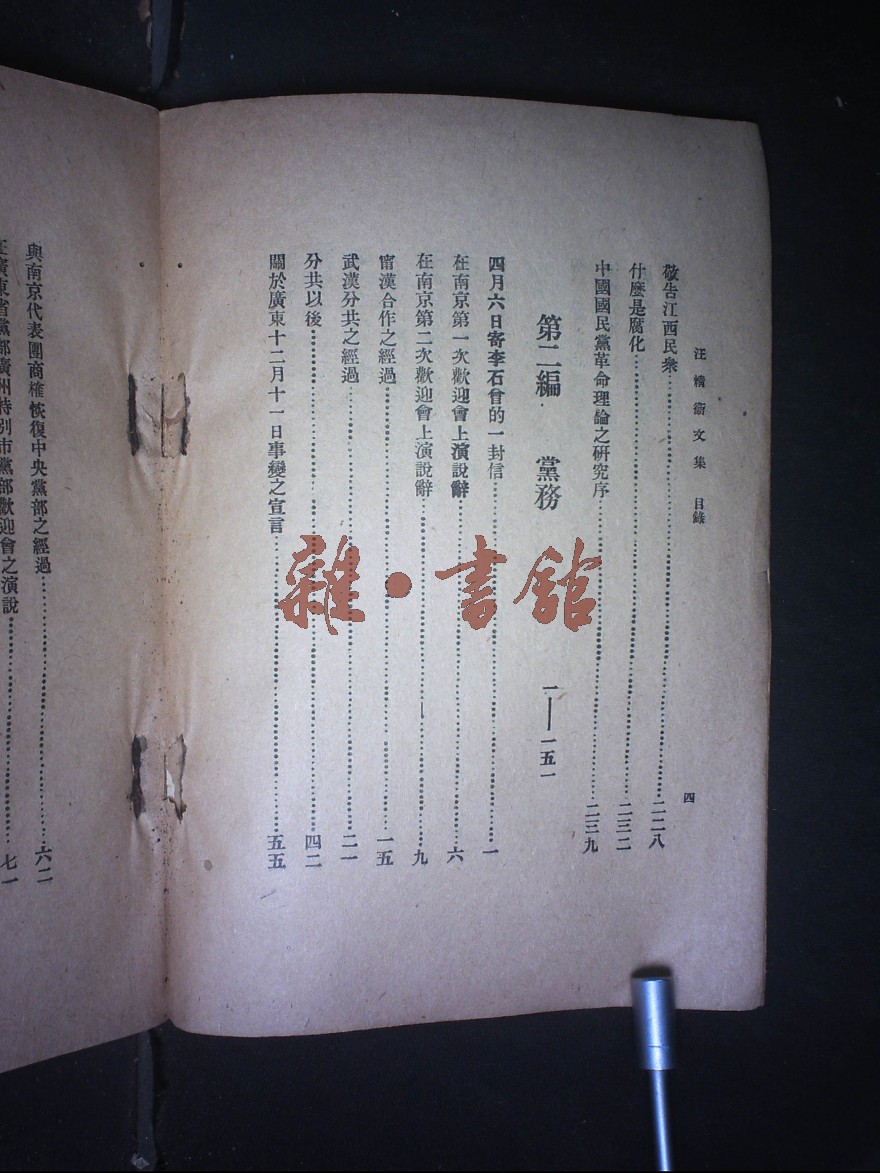 汪精衞文集 目錄
四
敬告江西民衆…………二二八
什麼是腐化…………二三二
中國國民黨革命理論之研究序…………二三九
第二編 黨務 一——一五一
四月六日寄李石曾的一封信…………一
在南京第一次歡迎會上演說辭…………六
在南京第二次歡迎會上演說辭…………九
甯漢合作之經過…………一五
武漢分共之經過…………二一
分共以後…………四二
關於廣東十二月十一日事變之宣言…………五五
與南京代表團商榷恢復中央黨部之經過…………六二
在廣東省黨部廣州特別市黨部歡迎會之演說…………七一
雜·書館